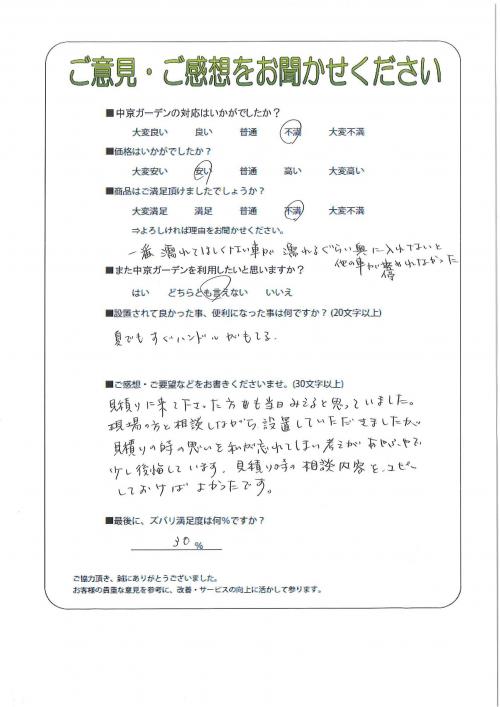 ご意見・ご感想をお聞かせください
■中京ガーデンの対応はいかがでしたか？
大変良い 良い 普通 不満 大変不満
■価格はいかがでしたか？
大変安い 安い 普通 高い 大変高い
■商品はご満足頂けましたでしょうか？
大変満足 満足 普通 不満 大変不満
⇒よろしければ理由をお聞かせください。
一番濡れてほしくない車が濡れるぐらい奥に入れないと
他の車が
なかった
■また中京ガーデンを利用したいと思いますか？
はい どちらとも言えない いいえ
■設置されて良かった事、便利になった事は何ですか？(20文字以上)
夏でもすぐハンドルがもてる。
■ご感想・ご要望などをお書きくださいませ。(30文字以上)
見積りに来て下さった方も当日みえると思っていました。
現場の方と相談しながら設置していただきましたが、
見積りの時の思いを私が忘れてしまい考えがあやふやで
少し後悔しています。見積り時の相談内容をコピー
しておけばよかったです。
■最後に、ズバリ満足度は何%ですか？
30 %
ご協力頂き、誠にありがとうございました。
お客様の貴重な意見を参考に、改善・サービスの向上に活かして参ります。